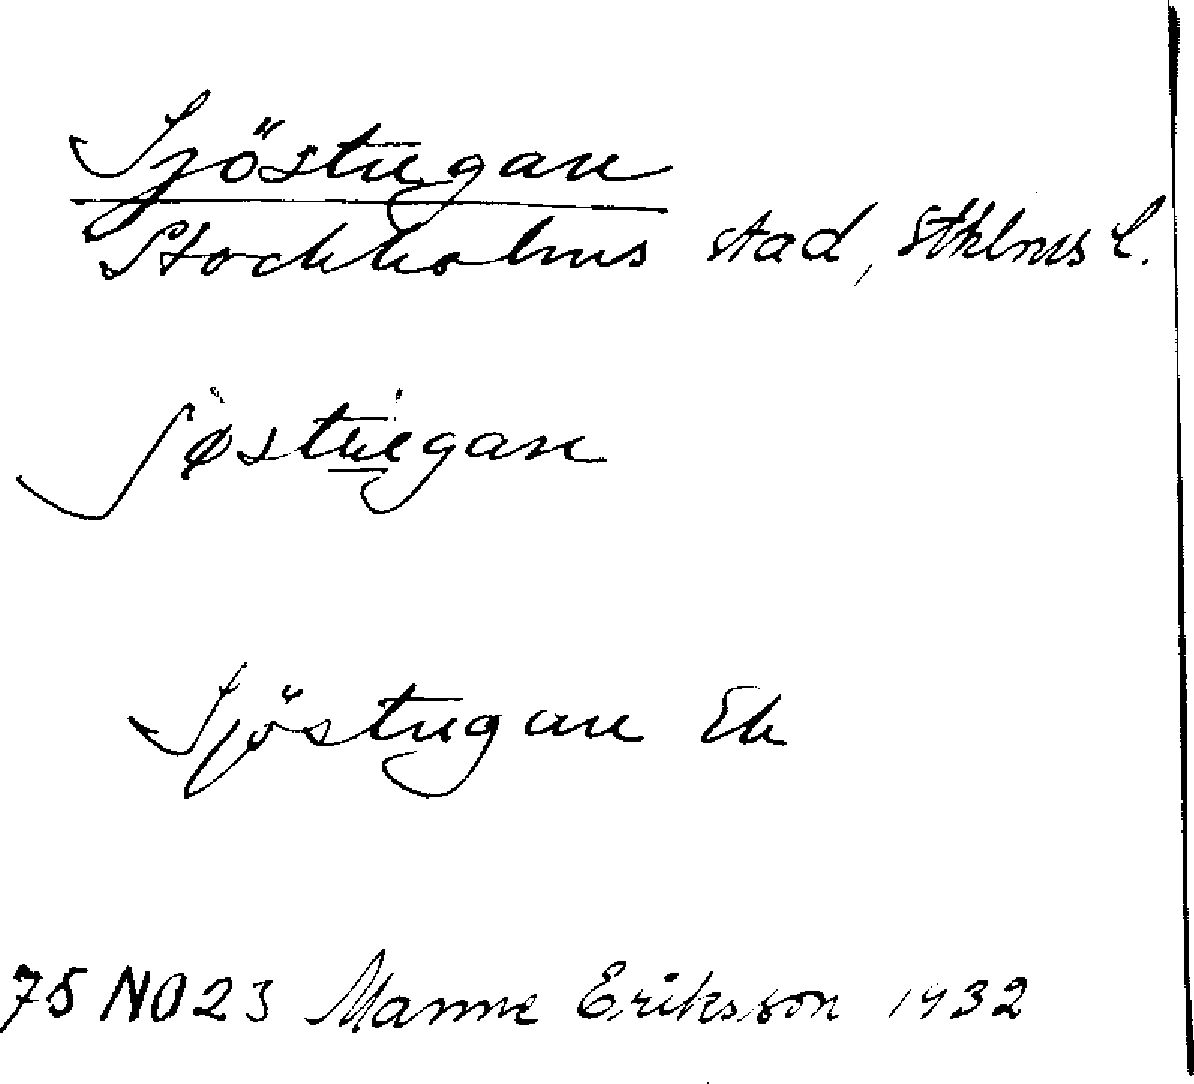 Sjöstugan
Stockholms stad, Sthlms l.
Sjöstugan Ek
75 NO 23 Manne Eriksson 1932